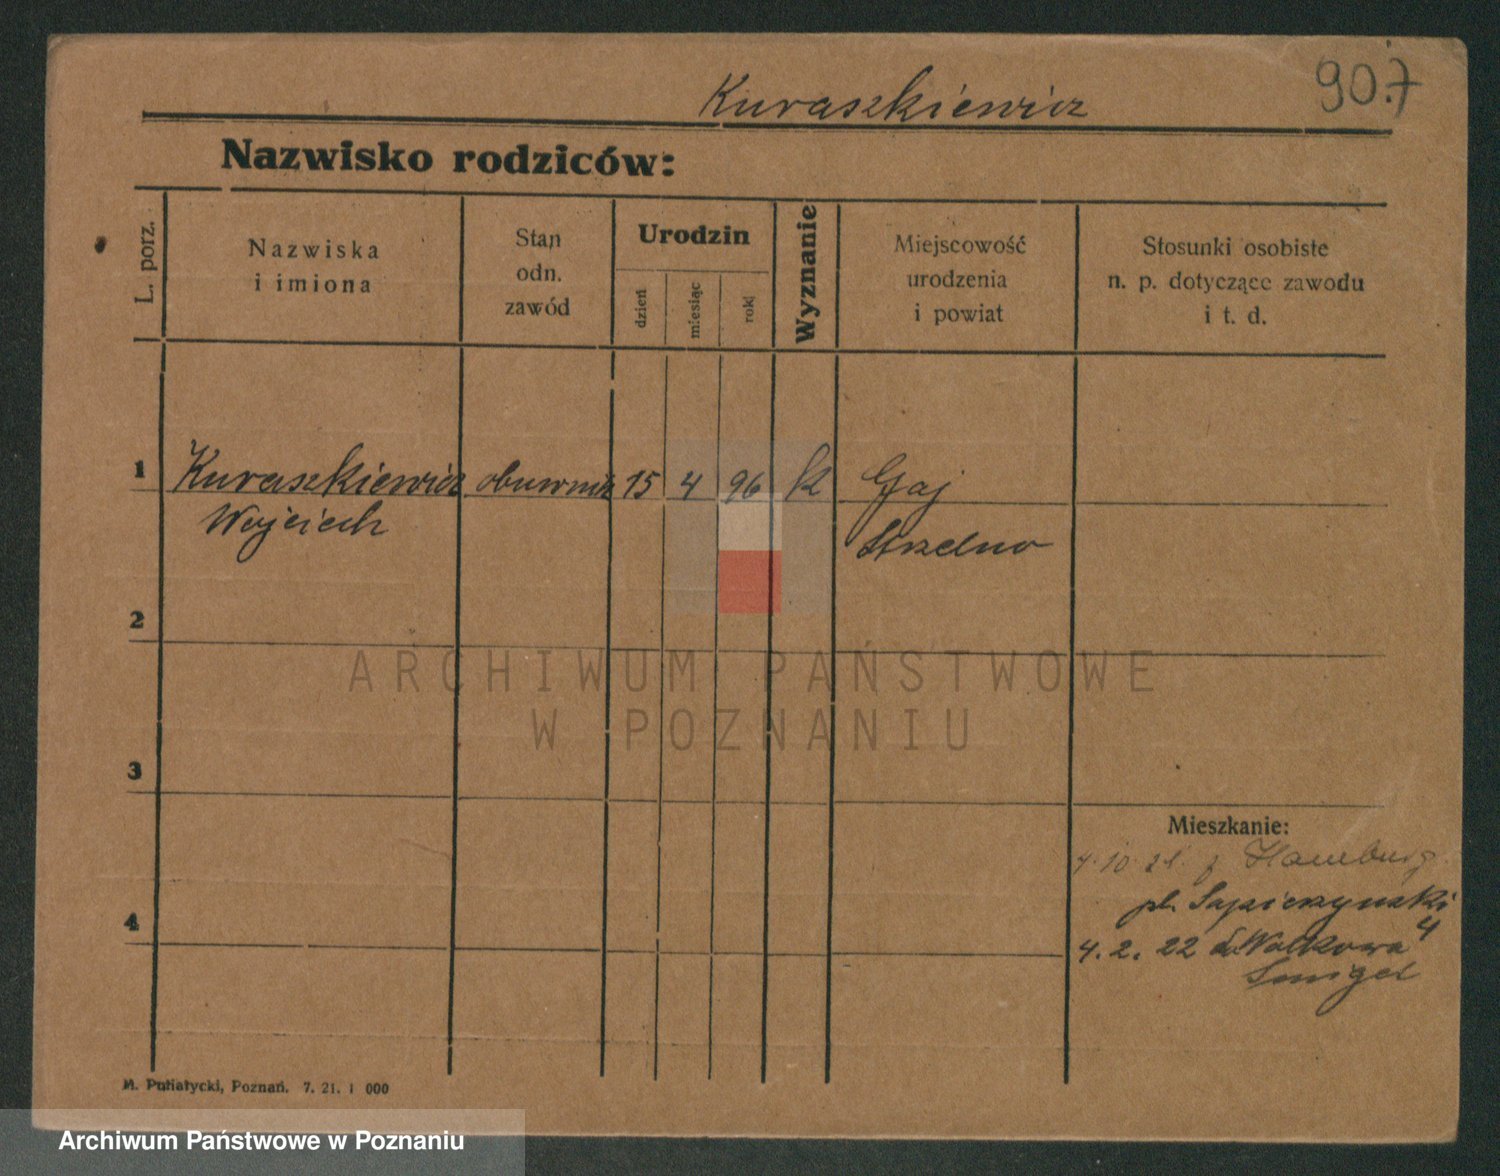 Kuraszkiewicz
90.7
Nazwisko rodziców:
L. porz.
Nazwiska
i imiona
Stan
odn.
zawód
Urodzin
dzień
miesiąc
rok
Wyznanie
Miejscowość
urodzenia
i powiat
Stosunki osobiste
n. p. dotyczące zawodu
i t. d.
1 Kuraszkiewicz obuwnik 15 4 96 k Gaj
Wojciech Strzelno
2
ARCHIWUM PAŃSTWOWE
W POZNANIU
3
Mieszkanie:
4.10.21. z Hamburg
pl. Sapieżyński
4
4
4. 2. 22 Wolkowa
Smigel
M. Putiatycki, Poznań. 7. 21. 1 000
Archiwum Państwowe w Poznaniu